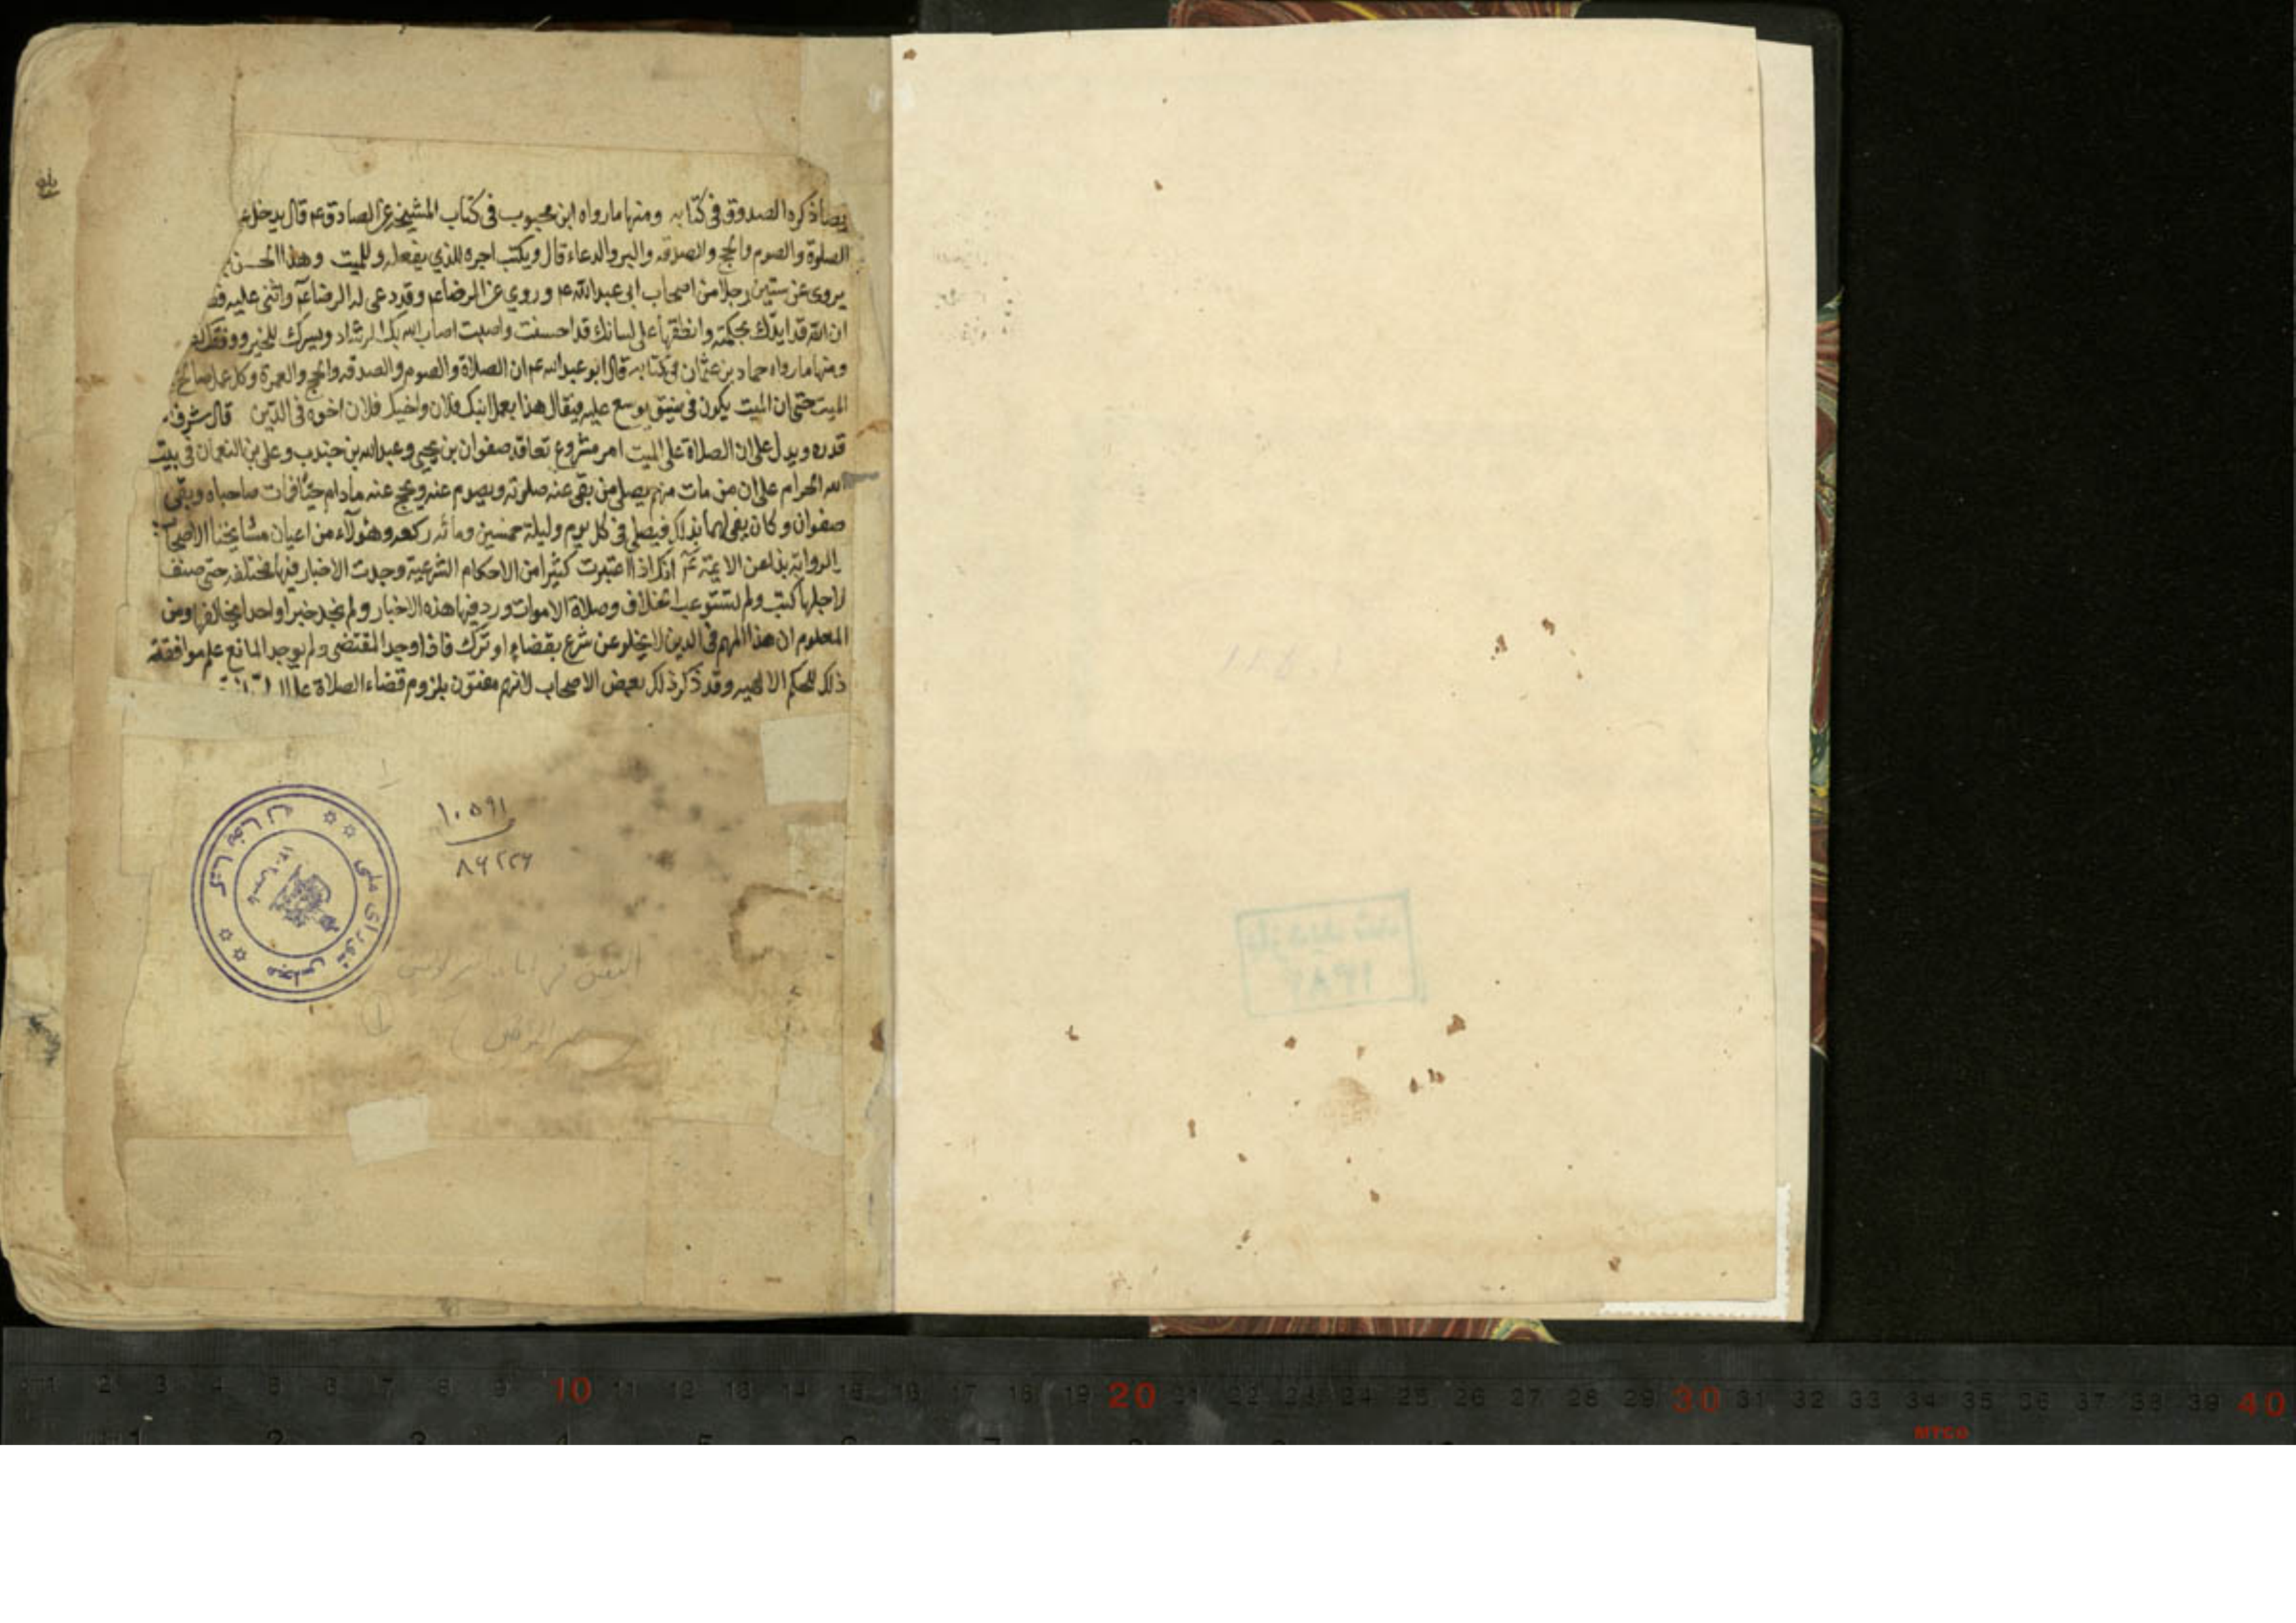 ذكره الصدوق في كتابه ومنها ما رواه ابن محبوب في كتاب المشيخه عن الصادق ع قال يدخل
الصلوة والصوم والحج والصدقه والبر والدعاء قال ويكتب اجره للذي يفعله وللميت وهذا الحسن
يروى عن ستين رجلا من اصحاب ابي عبد الله ع وروي عن الرضا ع وقد دعى له الرضا ع واثنى عليه
ان الله قد ايدك بحكمته وانطقها على لسانك قد احسنت واصبت اصاب الله بك الرشاد ويسرك للخير ووفقك
ومنها ما رواه حماد بن عثمان في كتابه قال ابو عبد الله ع ان الصلاة والصوم والصدقه والحج والعمرة وكل عمل صالح
الميت حتى ان الميت يكون في ضيق يوسع عليه فيقال هذا بعمل ابنك فلان واخيك فلان اخوه في الدين قال شرف
قدره ويدل على ان الصلاة على الميت امر مشروع تعاقد صفوان بن يحيى وعبد الله بن جندب وعلي بن النعمان في بيت
الله الحرام على ان من مات منهم يصلي من بقي عنه صلوته ويصوم عنه ويحج عنه مادام حيا فمات صاحباه وبقي
صفوان وكان يفي لهما بذلك فيصلي في كل يوم وليلة خمسين ومائه ركعه وهؤلاء من اعيان مشايخنا الاصحاب
الرواية عن الايمة انك اذا اعتبرت كثيرا من الاحكام الشرعية وجدت الاخبار فيها مختلفه حتى صنف
لاجلها كتب ولم تستوعب الخلاف وصلاة الاموات ورد فيها هذه الاخبار ولم نجد خبرا واحدا يخالفها ومن
المعلوم ان هذا المهم في الدين لا يخلو عن شرع بقضاء او ترك فاذا وجد المقتضى ولم يوجد المانع علم موافقة
ذلك للحكم الالهيه وقد ذكر ذلك بعض الاصحاب لانهم مفتون بلزوم قضاء الصلاة
١٠٥٩١
٨٦٢٢٦
كتابخانه
مجلس شورای ملی
بازدید شد